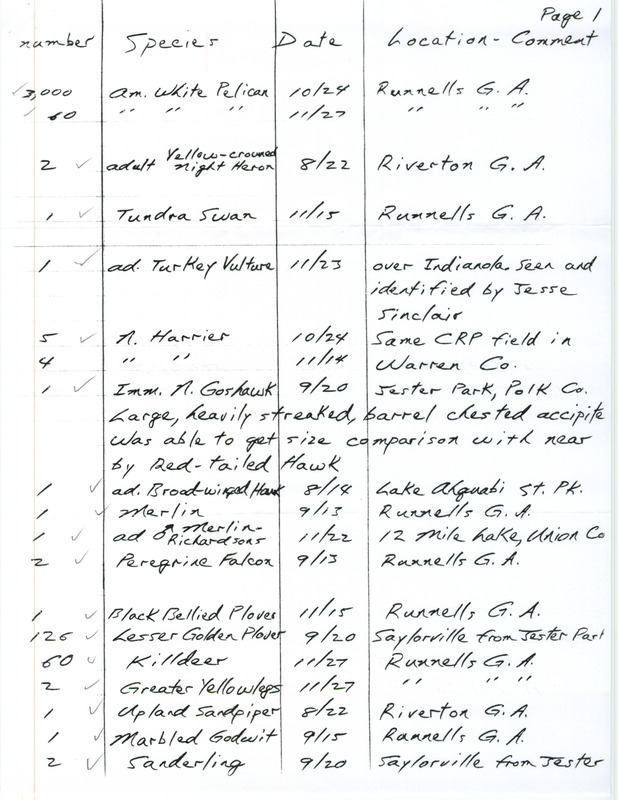 Page 1
number Species Date Location - Comment
3,000 am. White Pelican 10/24 Runnells G. A.
60 " " " 11/27 " " "
2 adult Yellow-crowned Night Heron 8/22 Riverton G. A.
1 Tundra Swan 11/15 Runnells G. A.
1 ad. Turkey Vulture 11/23 over Indianola. Seen and
identified by Jesse
Sinclair
5 N. Harrier 10/24 Same CRP field in
4 " " 11/14 Warren Co.
1 Imm. N. Goshawk 9/20 Jester Park, Polk Co.
Large, heavily streaked, barrel chested accipite
was able to get size comparison with near
by Red-tailed Hawk
1 ad. Broad-winged Hawk 8/14 Lake Ahquabi St. Pk.
1 Merlin 9/13 Runnells G. A.
1 ad ♂ Merlin-Richardsons 11/22 12 Mile Lake, Union Co
2 Peregrine Falcon 9/13 Runnells G. A.
1 Black Bellied Plover 11/15 Runnells G. A.
126 Lesser Golden Plover 9/20 Saylorville from Jester Park
60 Killdeer 11/27 Runnells G. A.
2 Greater Yellowlegs 11/27 " " "
1 Upland Sandpiper 8/22 Riverton G. A.
1 Marbled Godwit 9/15 Runnells G. A.
2 Sanderling 9/20 Saylorville from Jester